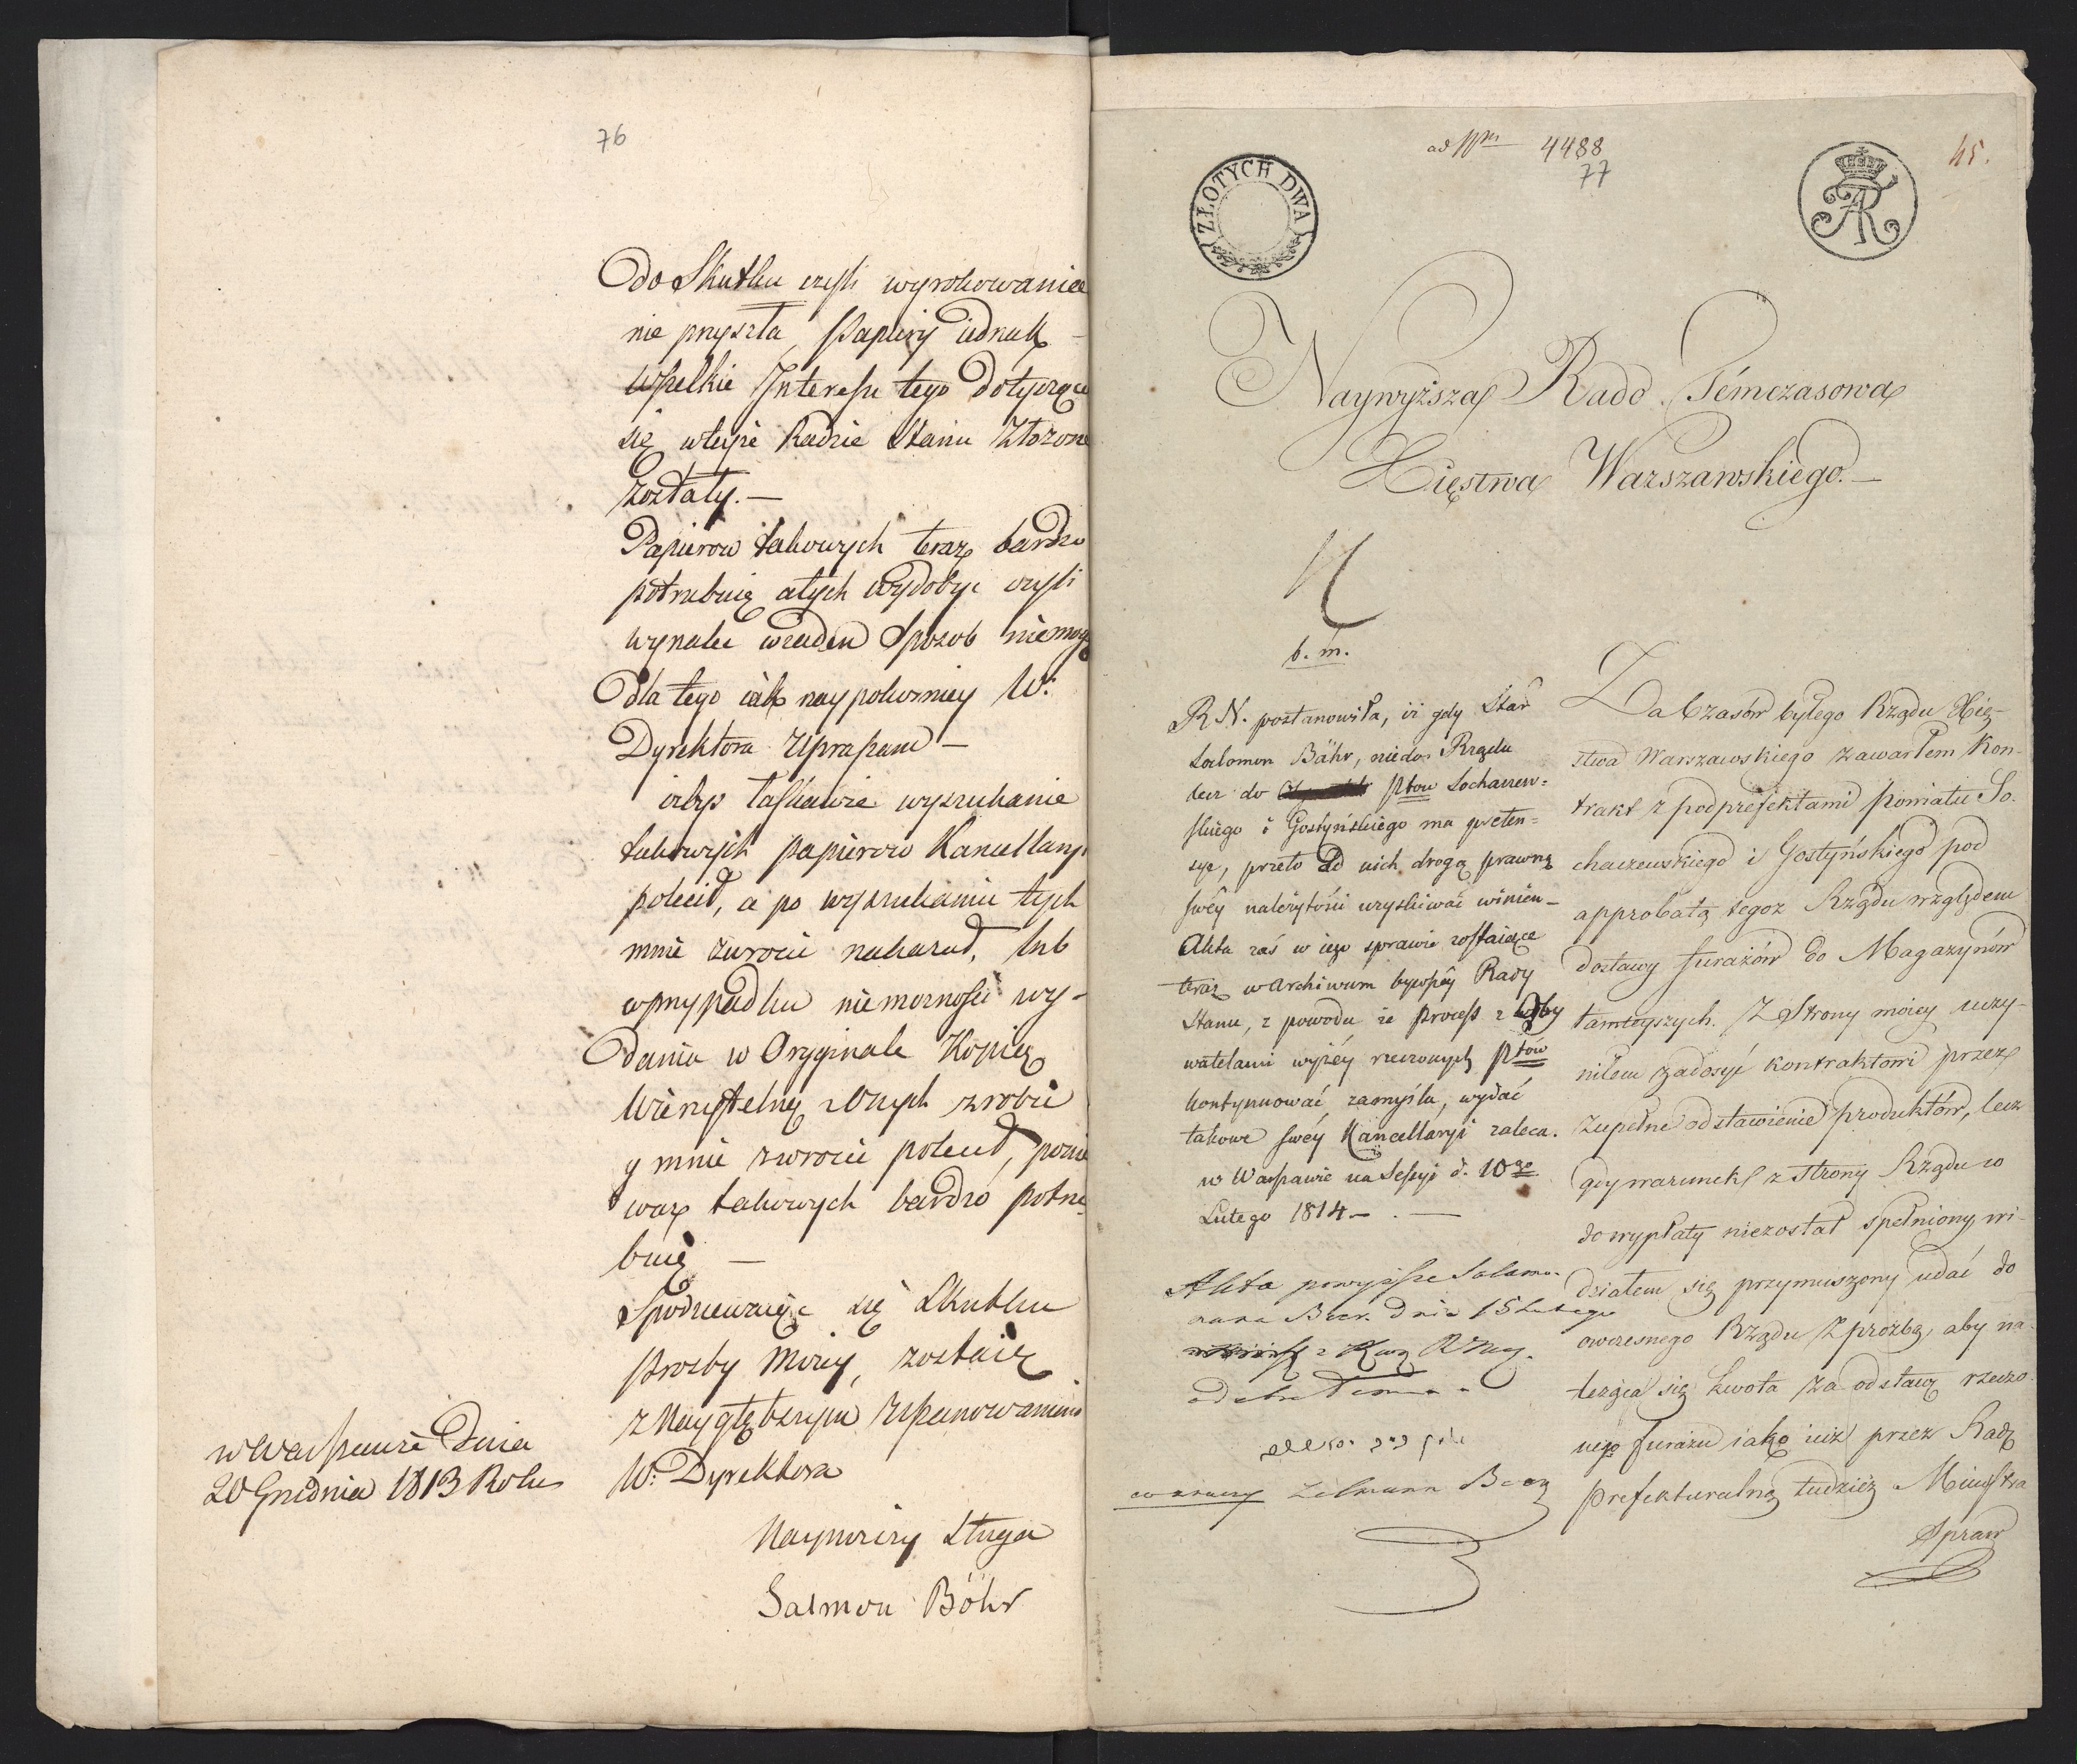 76
do Skutku czyli wyrokowania
nie przyszła, Papiery iednak
wszelkie Interessu tego dotyczące
się w teyże Radzie Stanu złozone
zostały. —
Papierow takowych teraz bardzo
potrzebuię a tych wydobyć czyli
wynaleć w żaden Sposob niemogę
dla tego iak naypokorniey W:
Dyrektora Upraszam —
iżbyś łaskawie wyszukanie
takowych papierow Kancellaryi
polecił, a po wyszukaniu tych
mnie zwrocić nakazał, lub
w przypadku niemoznosci wy-
dania w Oryginale Kopię
Wierzytelną z Onych zrobić
y mnie zwrocić polecił, ponie
waz takowych bardzo potrze
buię —
Spodziewaiąc się Skutku
Prozby Moiey, zostaię
z Naygłębszym Uszanowaniem
W: Dyrektora
Nayniższy Sługa
Salmon Böhr
w Warszawie Dnia
20 Grudnia 1813 Roku
ad Nrm 4488
77
45.
ZŁOTYCH DWA
Naywyższa Rado Témczasowa
Xięstwa Warszawskiego. —
b. m.
R N. postanowiła, iż gdy Star
Salomon Bähr, nie do Rządu
lecz do Ptow Sochaczew=
skiego i Gostyńskiego ma preten=
sye, przeto od nich drogą prawną
swéy należytości uzyskiwać winien —
Akta zaś w iego sprawie zostaiące
teraz w Archiwum bywszéy Rady
Stanu, z powodu że process z Oby
watelami wyżéy rzeczonych Ptów
kontynuować zamyśla, wydać
takowe swéy Kancellaryi zaleca.
w Warszawie na Sessyi d. 10go
Lutego 1814 —
Akta powyższe Salamo-
na Beer. Dnia 15 Lutego
odebrałem
Zelmann Beer
Za Czasów byłego Rządu Xię-
stwa Warszawskiego zawarłem Kon-
trakt z podprefektami Powiatu So-
chaczewskiego i Gostyńskiego pod
approbatą tegoż Rządu względem
dostawy furażów do Magazynów
tamteyszych. Z Strony moiey uczy-
niłem zadosyć kontraktowi przez
zupełne odstawienie produktów, lecz
gdy warunek z strony Rządu co
do wypłaty niezostał spełniony, wi-
działem się przymuszony udać do
owczesnego Rządu z prozbą, aby na-
leżąca się kwota za odstawę rzeczo-
nego furażu iako iuż przez Radę
Prefekturalną tudzież Ministra
Spraw